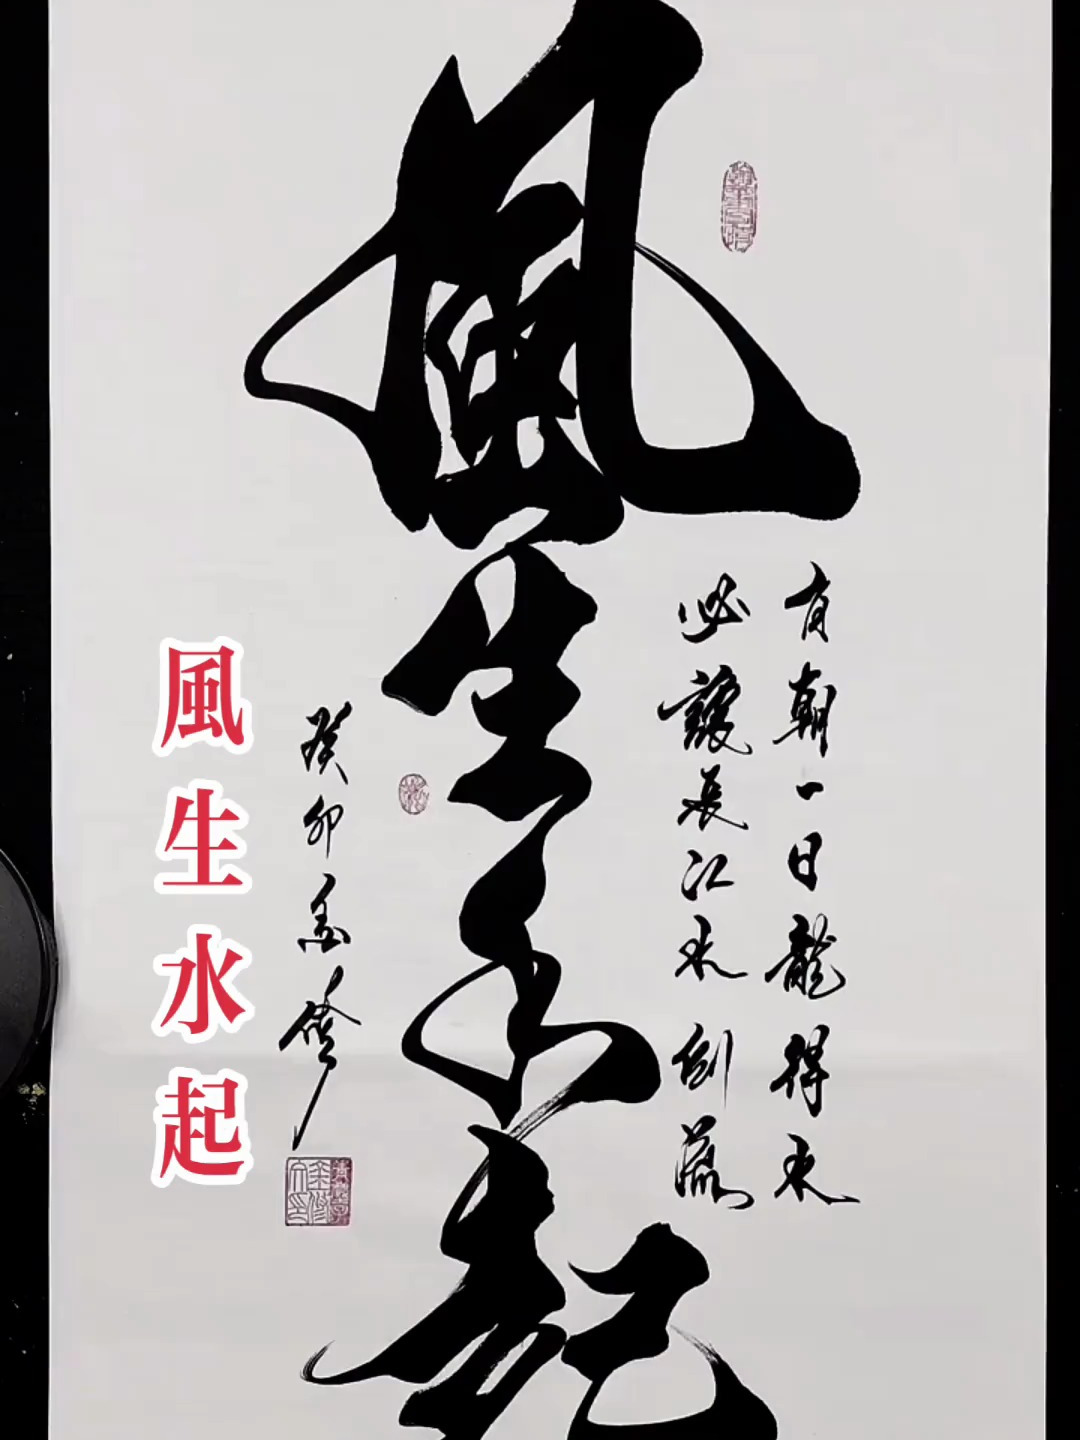 風生水起
有朝一日龍得水
必讓長江水倒流
癸卯金修
風生水起